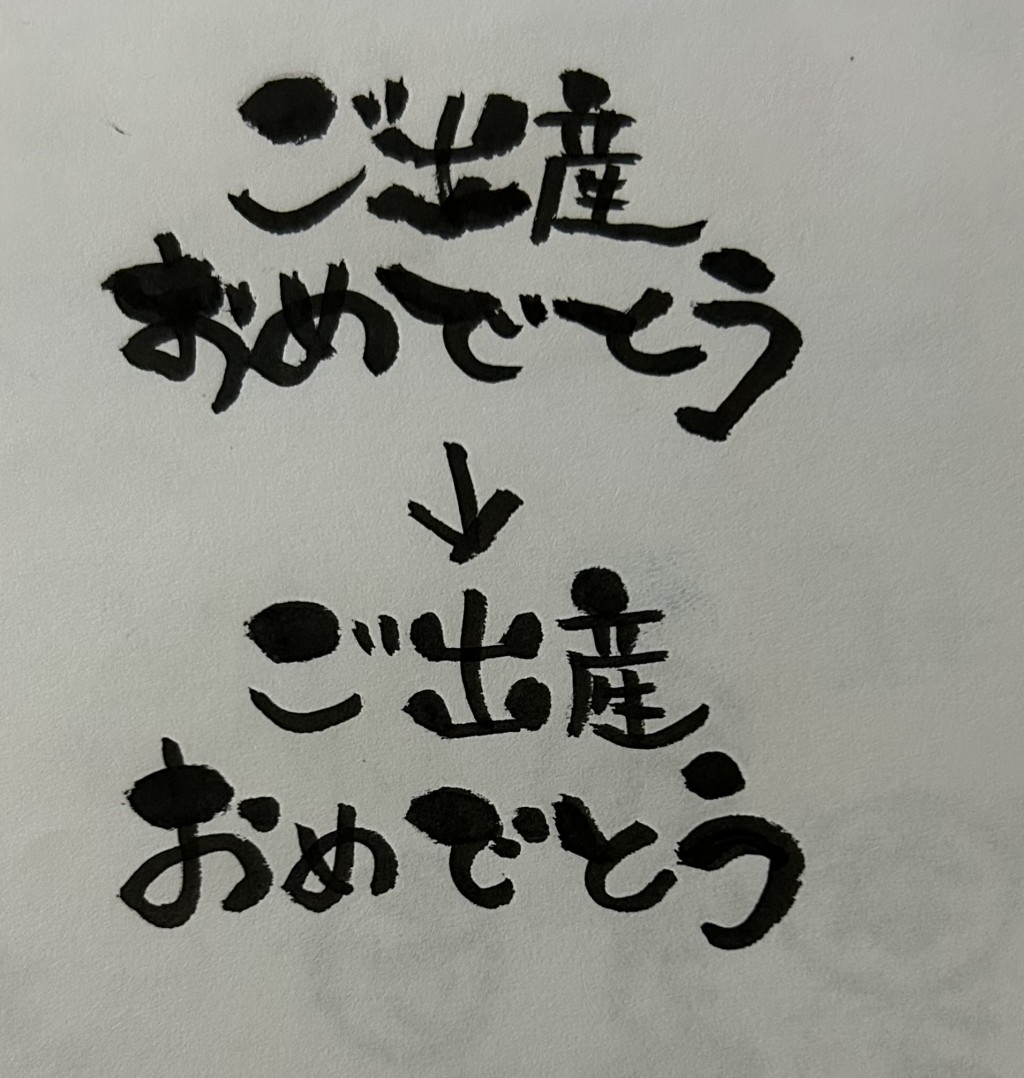 ご出産
おめでとう
↓
ご出産
おめでとう